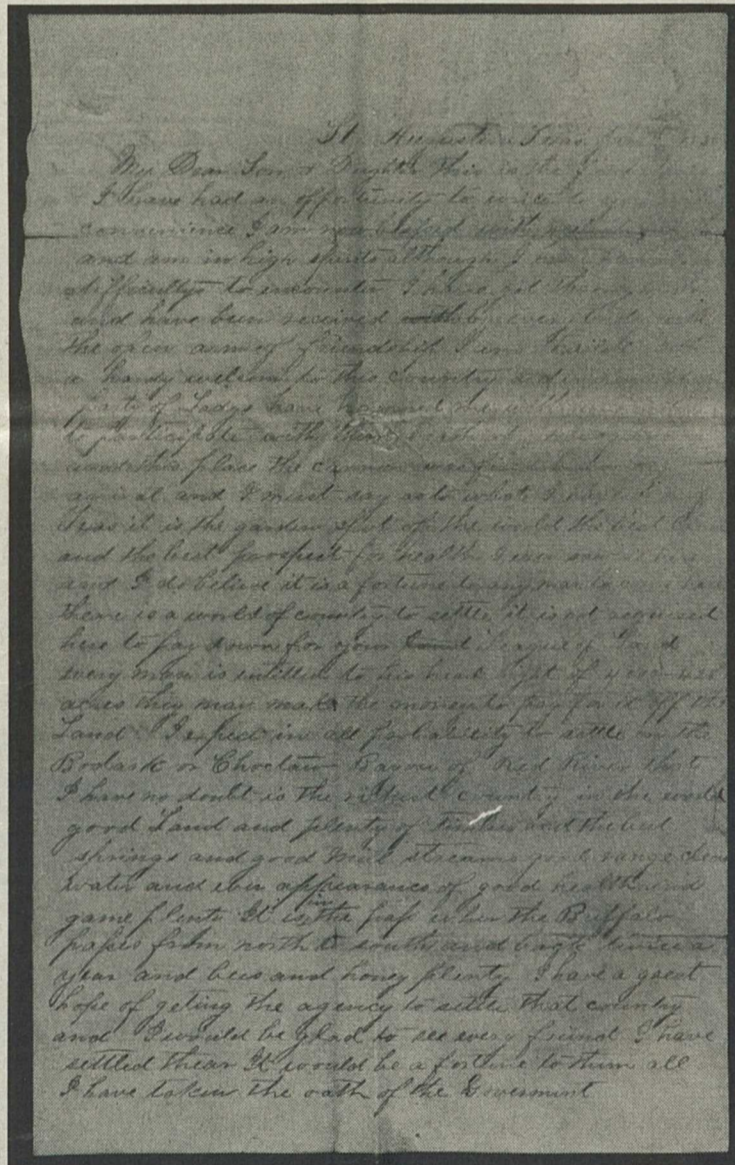 St Augusteen Texas
My Dear Son & Daughter This is the first
I have had an opportunity to write to you
convenience I am now blessed with
and am in high spirits although I have
difficultys to encounter I have got through
and have been received with
the open arms of friendship I am
a hardy welcome to this country
party of Ladys have honored me with
to participate with them
this place the cannon was
arival and I must say as to what I have
Texas it is the garden spot of the world the best
and the best prospect for health I ever saw
and I do believe it is a fortune to any man to
there is a world of country to settle it is not required
here to pay down for your League of Land
every man is entitled to his head right of
acres they may make the money to pay for it off the
Land I expect in all probability to settle on the
Bodark or Choctaw Bayou of Red River that
I have no doubt is the richest country in the world
good Land and plenty of timber and the best
springs and good mill streams good range clear
water and ever appearance of good health and
game plenty It is in the pass where the Buffalo
passes from north to south and back twice a
year and bees and honey plenty I have a great
hope of geting the agency to settle that country
and I would be glad to see every friend I have
settled thear It would be a fortune to them all
I have taken the oath of the Goverment